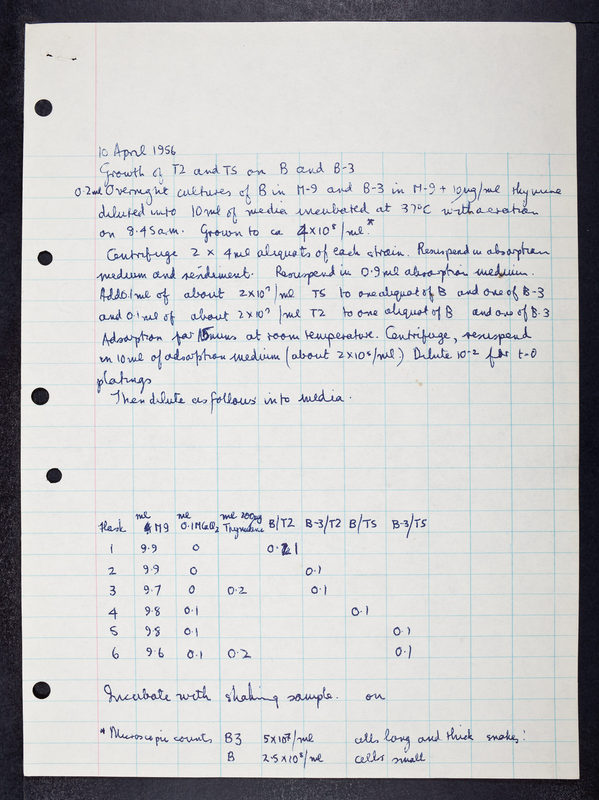 10 April 1956
Growth of T2 and T5 on B and B-3
0.2ml Overnight cultures of B in M-9 and B-3 in M-9 + 10ug/ml thymine
diluted into 10 ml of media incubated at 37°C with aeration
on 8.45 a.m. Grown to ca 4x10⁸/ml.*
Centrifuge 2 x 4ml aliquots of each strain. Resuspend in absorption
medium and sediment. Resuspend in 0.9 ml absorption medium.
Add 0.1 ml of about 2x10⁷/ml T5 to one aliquot of B and one of B-3
and 0.1 ml of about 2x10⁷/ml T2 to one aliquot of B and one of B-3
Adsorption for 15 mins at room temperature. Centrifuge, resuspend
in 10 ml of adsorption medium (about 2x10⁵/ml) Dilute 10⁻² for t=0
platings
Then dilute as follows into media.
Flask ml M9 ml 0.1M CaCl₂ ml 200µg Thymidine B/T2 B-3/T2 B/T5 B-3/T5
1 9.9 0 0.1
2 9.9 0 0.1
3 9.7 0 0.2 0.1
4 9.8 0.1 0.1
5 9.8 0.1 0.1
6 9.6 0.1 0.2 0.1
Incubate with shaking sample. on
* Microscopic counts B3 5x10⁷/ml cells long and thick snakes!
B 2.5x10⁸/ml cells small